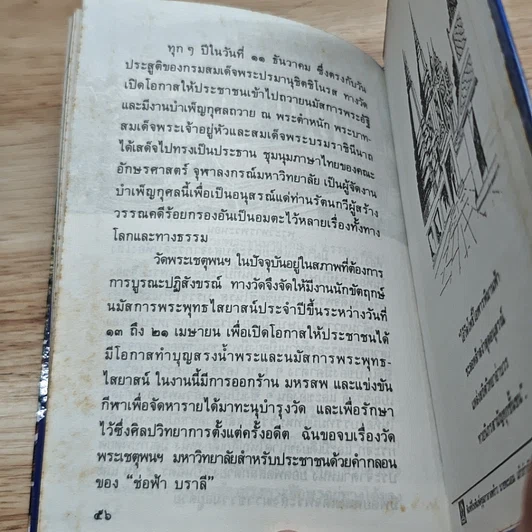 ทุก ๆ ปีในวันที่ ๑๑ ธันวาคม ซึ่งตรงกับวัน
ประสูติของกรมสมเด็จพระปรมานุชิตชิโนรส ทางวัด
เปิดโอกาสให้ประชาชนเข้าไปถวายนมัสการพระอัฐิ
และมีงานบำเพ็ญกุศลถวาย ณ พระตำหนัก พระบาท-
สมเด็จพระเจ้าอยู่หัวและสมเด็จพระบรมราชินีนาถ
ได้เสด็จไปทรงเป็นประธาน ชุมนุมภาษาไทยของคณะ
อักษรศาสตร์ จุฬาลงกรณ์มหาวิทยาลัย เป็นผู้จัดงาน
บำเพ็ญกุศลนี้เพื่อเป็นอนุสรณ์แด่ท่านรัตนกวีผู้สร้าง
วรรณคดีร้อยกรองอันเป็นอมตะไว้หลายเรื่องทั้งทาง
โลกและทางธรรม
วัดพระเชตุพนฯ ในปัจจุบันอยู่ในสภาพที่ต้องการ
การบูรณะปฏิสังขรณ์ ทางวัดจึงจัดให้มีงานนักขัตฤกษ์
นมัสการพระพุทธไสยาสน์ประจำปีขึ้นระหว่างวันที่
๑๓ ถึง ๒๑ เมษายน เพื่อเปิดโอกาสให้ประชาชนได้
มีโอกาสทำบุญสรงน้ำพระและนมัสการพระพุทธ-
ไสยาสน์ ในงานนี้มีการออกร้าน มหรสพ และแข่งขัน
กีฬาเพื่อจัดหารายได้มาทะนุบำรุงวัด และเพื่อรักษา
ไว้ซึ่งศิลปวิทยาการตั้งแต่ครั้งอดีต ฉันขอจบเรื่องวัด
พระเชตุพนฯ มหาวิทยาลัยสำหรับประชาชนด้วยคำกลอน
ของ “ช่อฟ้า บราลี”
๕๖